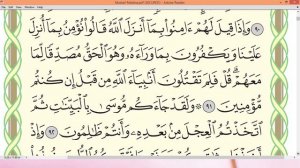 ٩٠ وَإِذَا قِيلَ لَهُمْ ءَامِنُوا۟ بِمَآ أَنزَلَ ٱللَّهُ قَالُوا۟ نُؤْمِنُ بِمَآ أُنزِلَ
عَلَيْنَا وَيَكْفُرُونَ بِمَا وَرَآءَهُۥ وَهُوَ ٱلْحَقُّ مُصَدِّقًا لِّمَا
مَعَهُمْ ۗ قُلْ فَلِمَ تَقْتُلُونَ أَنۢبِيَآءَ ٱللَّهِ مِن قَبْلُ إِن كُنتُم
مُّؤْمِنِينَ ٩١ وَلَقَدْ جَآءَكُم مُّوسَىٰ بِٱلْبَيِّنَٰتِ ثُمَّ
ٱتَّخَذْتُمُ ٱلْعِجْلَ مِنۢ بَعْدِهِۦ وَأَنتُمْ ظَٰلِمُونَ ٩٢ وَإِذْ